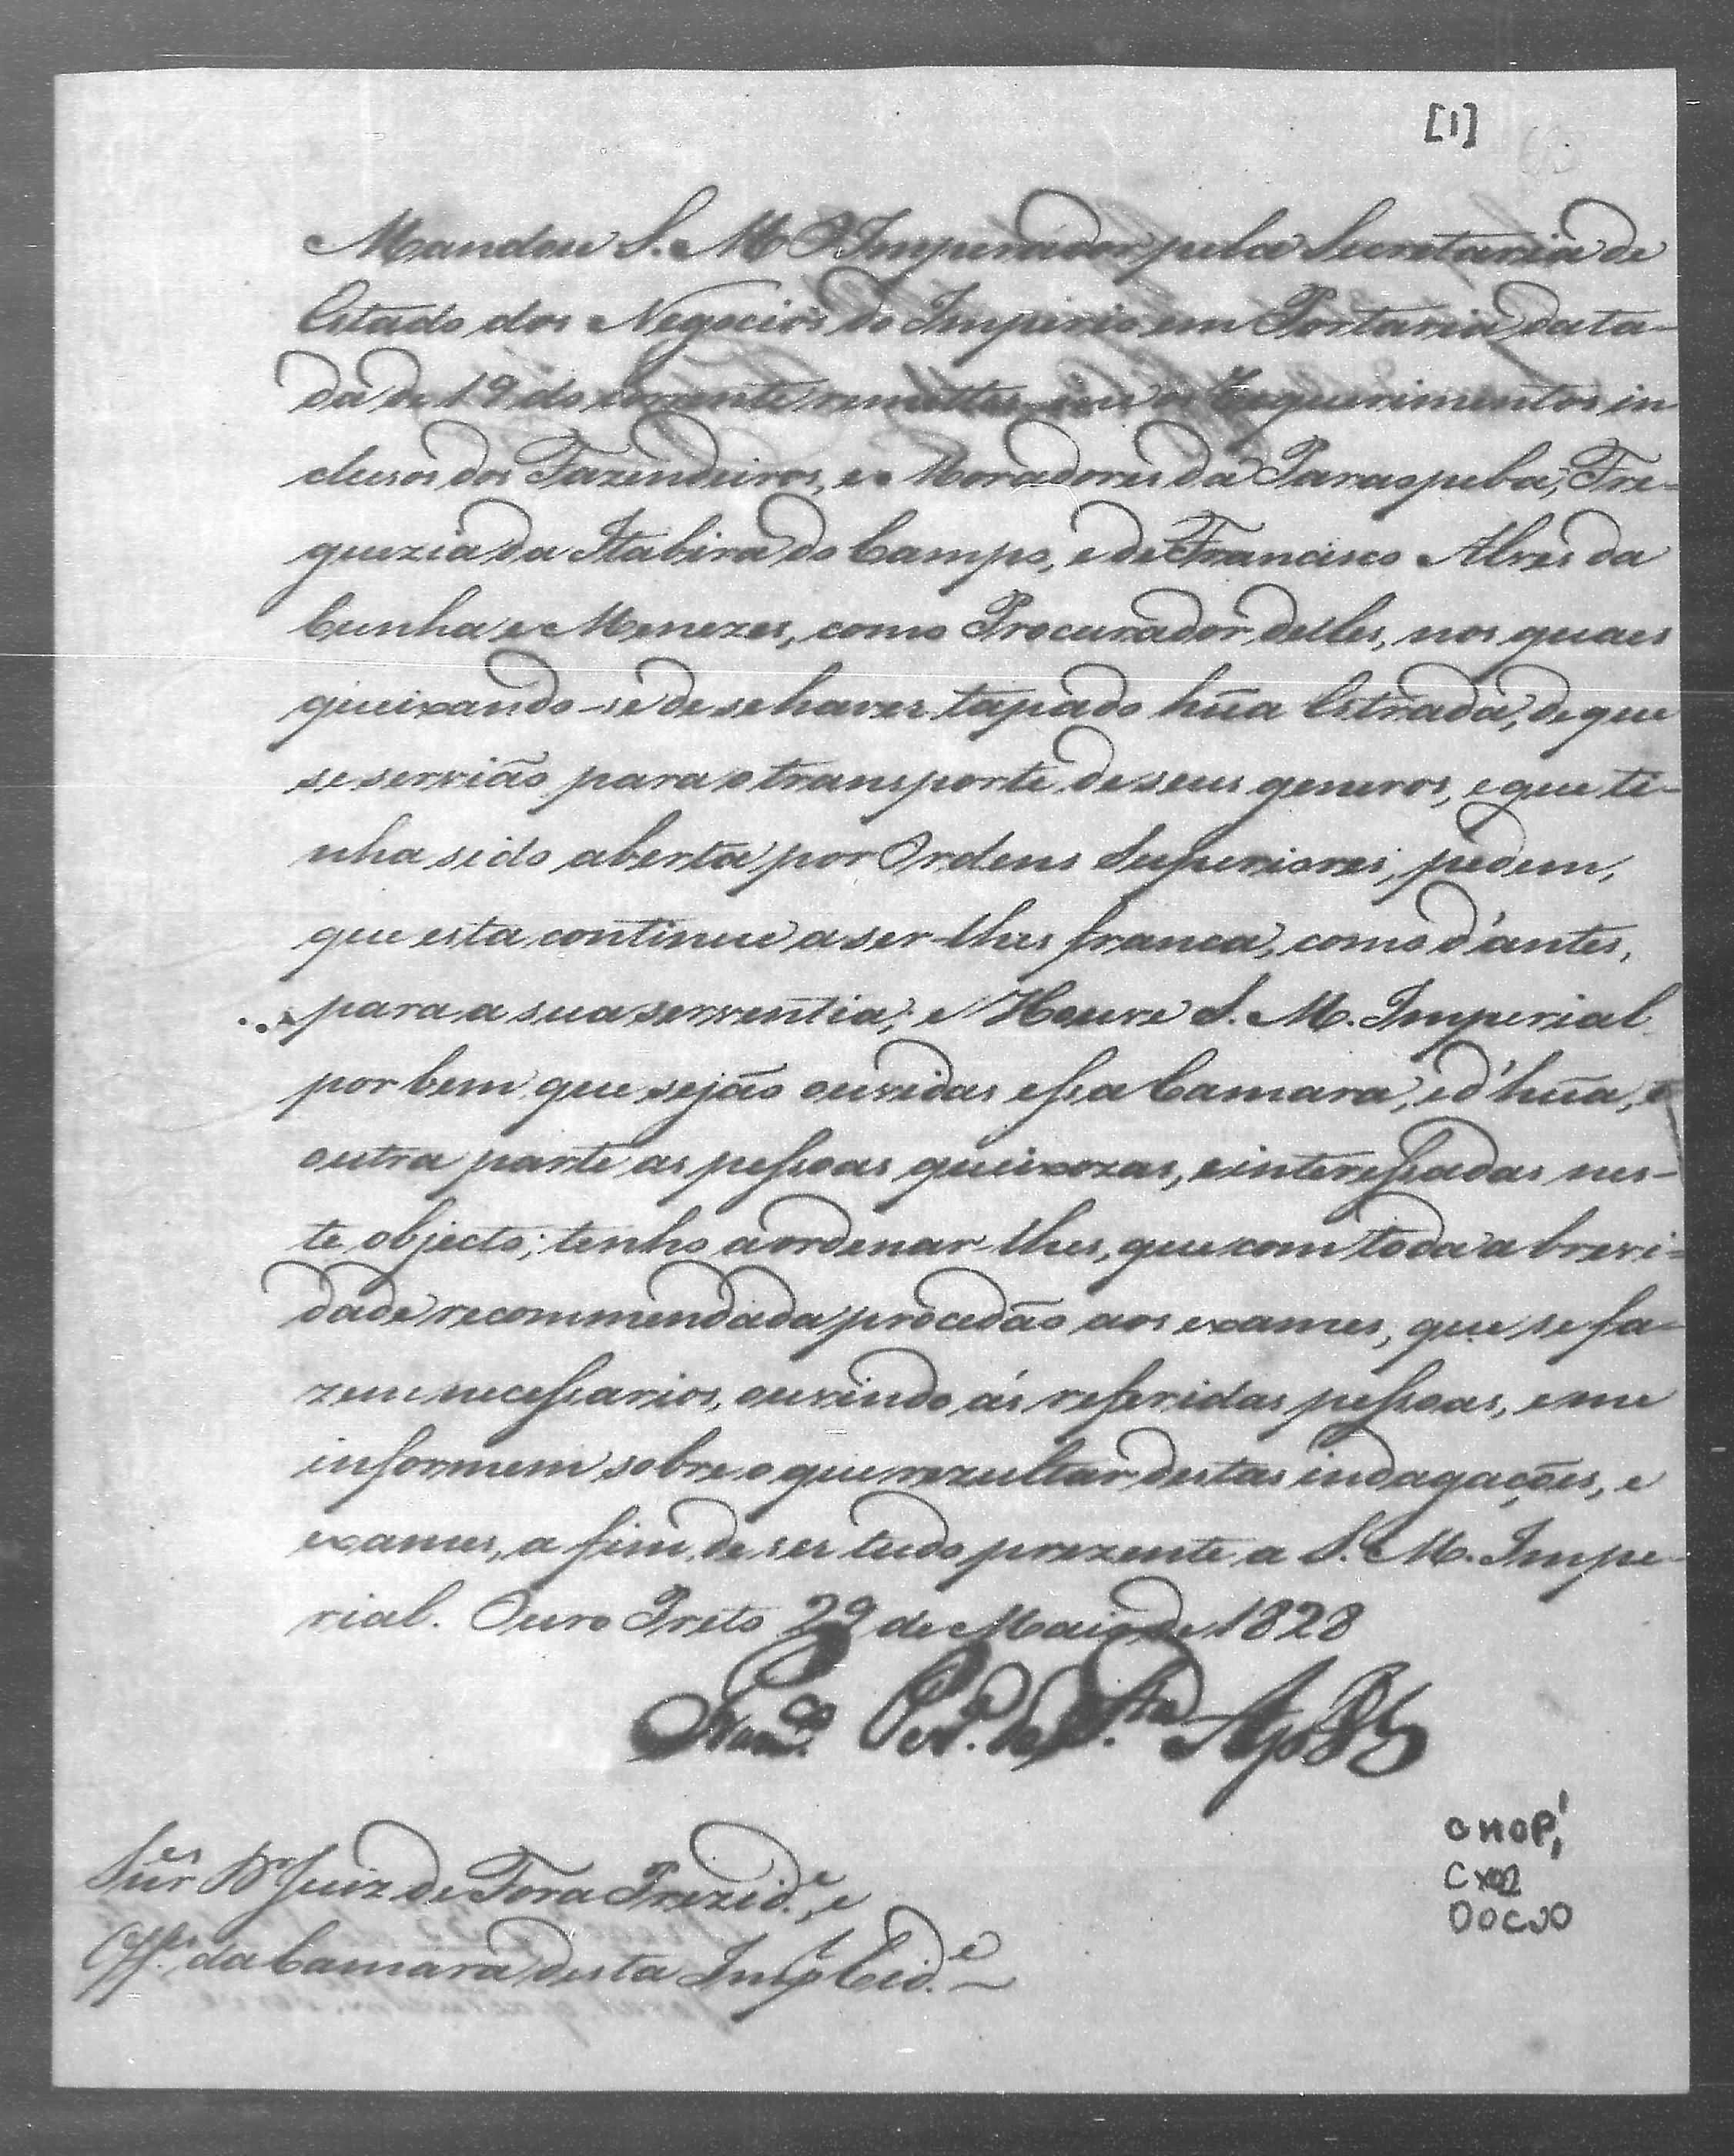 [1]
Mandou S. M. O Imperador pela Secretaria de
Estado dos Negocios do Imperio em Portaria data-
da de 19 do corrente remetter-me os Requerimentos in
clusos dos Fazendeiros, e Moradores da Paraopeba, Fre-
guezia da Itabira do Campo, e de Francisco Alves da
Cunha e Menezes, como Procurador delles, nos quaes
queixando-se de se haver tapado hũa Estrada, de que
se servião para o transporte de seus generos, e que ti-
nha sido aberta por Ordens Superiores, pedem,
que esta continue a ser-lhes franca, como d'antes,
para a sua serventia; e Houve S. M. Imperial
por bem que sejão ouvidas essa Camara, e d'hũa, e
outra parte as pessoas queixozas, e interessadas nes-
te objecto; tenho a ordenar-lhes, que com toda a brevi-
dade recommendada procedão aos exames, que se fa-
zem necessarios, ouvindo ás referidas pessoas, e me
informem sobre o que rezultar destas indagações, e
exames, a fim de ser tudo prezente a S. M. Impe-
rial. Ouro Preto 29 de Maio de 1828
Franco Per.ª de S.ta
Snr.es Dr. Juiz de Fora Prezid.e, e
Off.es da Camara desta Imp.l Cid.e
CMOP,
CX02
DOC30